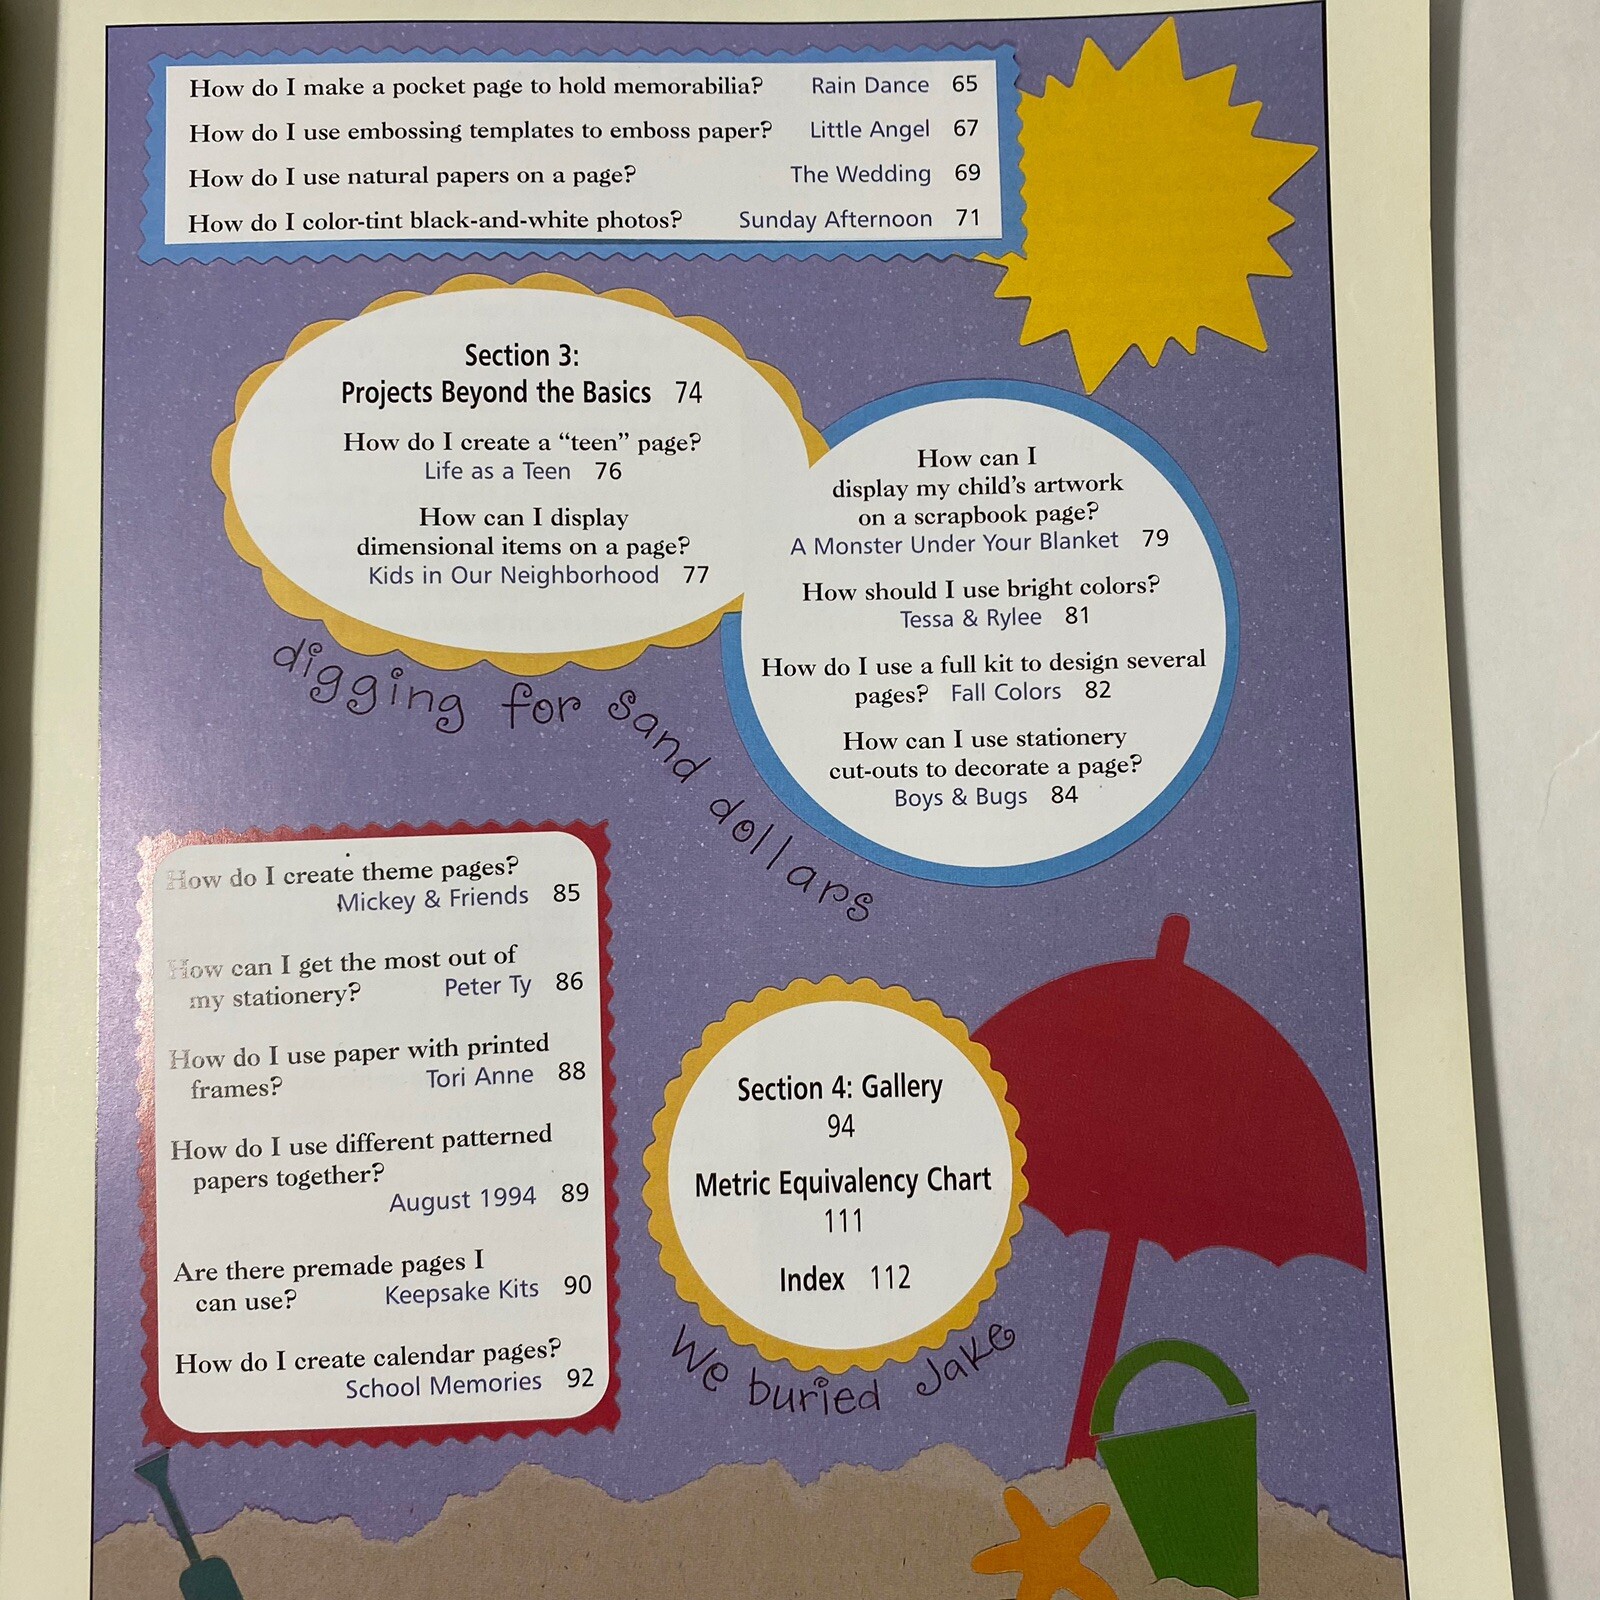 How do I make a pocket page to hold memorabilia? Rain Dance 65
How do I use embossing templates to emboss paper? Little Angel 67
How do I use natural papers on a page? The Wedding 69
How do I color-tint black-and-white photos? Sunday Afternoon 71
Section 3:
Projects Beyond the Basics 74
How do I create a “teen” page?
Life as a Teen 76
How can I display
dimensional items on a page?
Kids in Our Neighborhood 77
How can I
display my child’s artwork
on a scrapbook page?
A Monster Under Your Blanket 79
How should I use bright colors?
Tessa & Rylee 81
How do I use a full kit to design several
pages? Fall Colors 82
How can I use stationery
cut-outs to decorate a page?
Boys & Bugs 84
digging for sand dollars
How do I create theme pages?
Mickey & Friends 85
How can I get the most out of
my stationery? Peter Ty 86
How do I use paper with printed
frames? Tori Anne 88
How do I use different patterned
papers together?
August 1994 89
Are there premade pages I
can use? Keepsake Kits 90
How do I create calendar pages?
School Memories 92
Section 4: Gallery
94
Metric Equivalency Chart
111
Index 112
We buried Jake